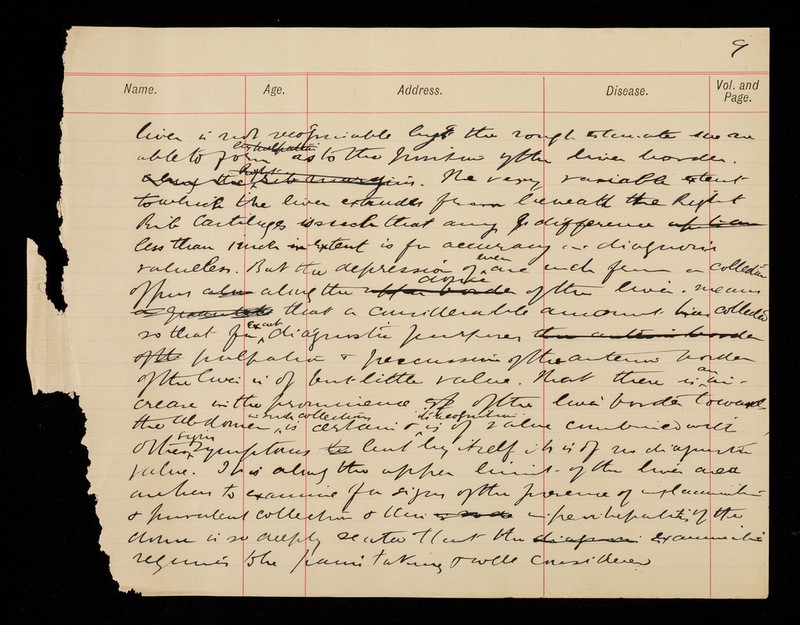 9
Name. Age. Address. Disease. Vol. and Page.
liver is not recognisable by the rough estimate we are
by palpation
able to form as to the position of the liver border.
along the Right Rib margin. The very variable extent
to which the liver extends from beneath the Right
Rib Cartilages is such that any difference
less than 1 inch in extent is for accuracy in diagnosis
valueless. But the depression of even one inch from a collection
of pus along the upper border of the liver means
that a considerable amount has collected
so that for exact diagnostic purposes the anterior border
of the palpation & percussion of the anterior border
of the liver is of but little value. That there is an in-
crease in the prominence of the liver border towards
the abdomen in such collections is certain & its recognition is of value combined with
other signs symptoms but by itself it is of no diagnostic
value. It is along the upper limit of the liver area
to examine for signs of the presence of inflammation
& purulent collection & this of the
is so deeply seated that the examination
requires to be painstaking & well considered